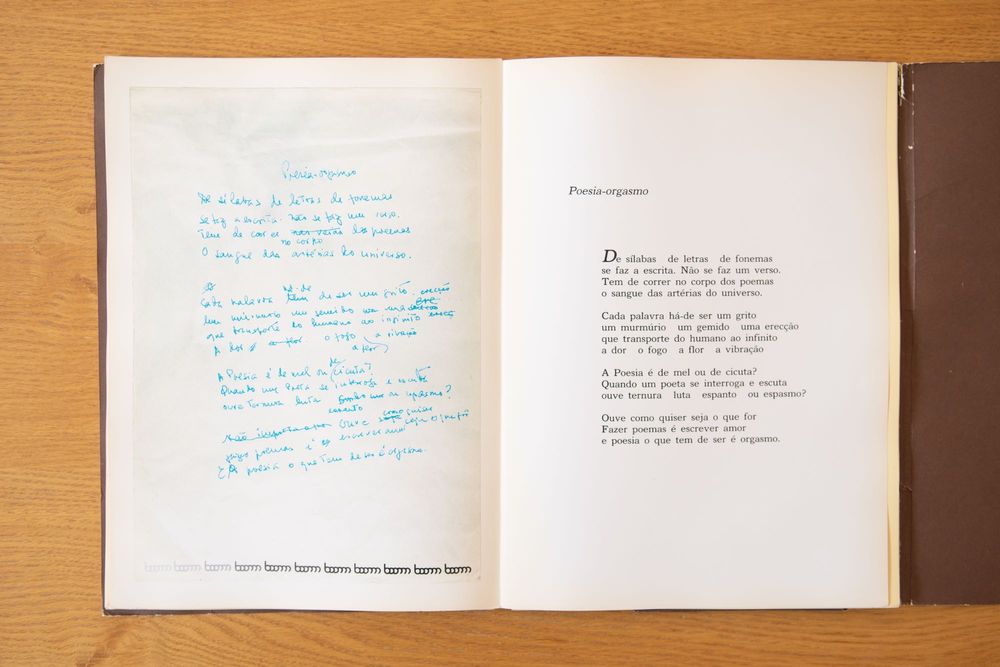 Poesia-orgasmo
De sílabas de letras de fonemas
se faz a escrita. Não se faz um verso.
Tem de correr dos poemas
no corpo
O sangue das artérias do universo.
há-de
Cada palavra tem de ser um grito
um murmúrio um gemido uma erecção
que transporte do humano ao infinito
A dor o fogo a vibração
a flor
de
A Poesia é de mel ou cicuta?
Quando um Poeta se interroga e escuta
ouve ternura luta espasmo?
espanto
Ouve como quiser seja o que for
fazer poemas é escrever amor
E poesia o que tem de ser é orgasmo.
boom boom boom boom boom boom boom boom boom boom boom
Poesia-orgasmo
De sílabas de letras de fonemas
se faz a escrita. Não se faz um verso.
Tem de correr no corpo dos poemas
o sangue das artérias do universo.
Cada palavra há-de ser um grito
um murmúrio um gemido uma erecção
que transporte do humano ao infinito
a dor o fogo a flor a vibração
A Poesia é de mel ou de cicuta?
Quando um poeta se interroga e escuta
ouve ternura luta espanto ou espasmo?
Ouve como quiser seja o que for
Fazer poemas é escrever amor
e poesia o que tem de ser é orgasmo.